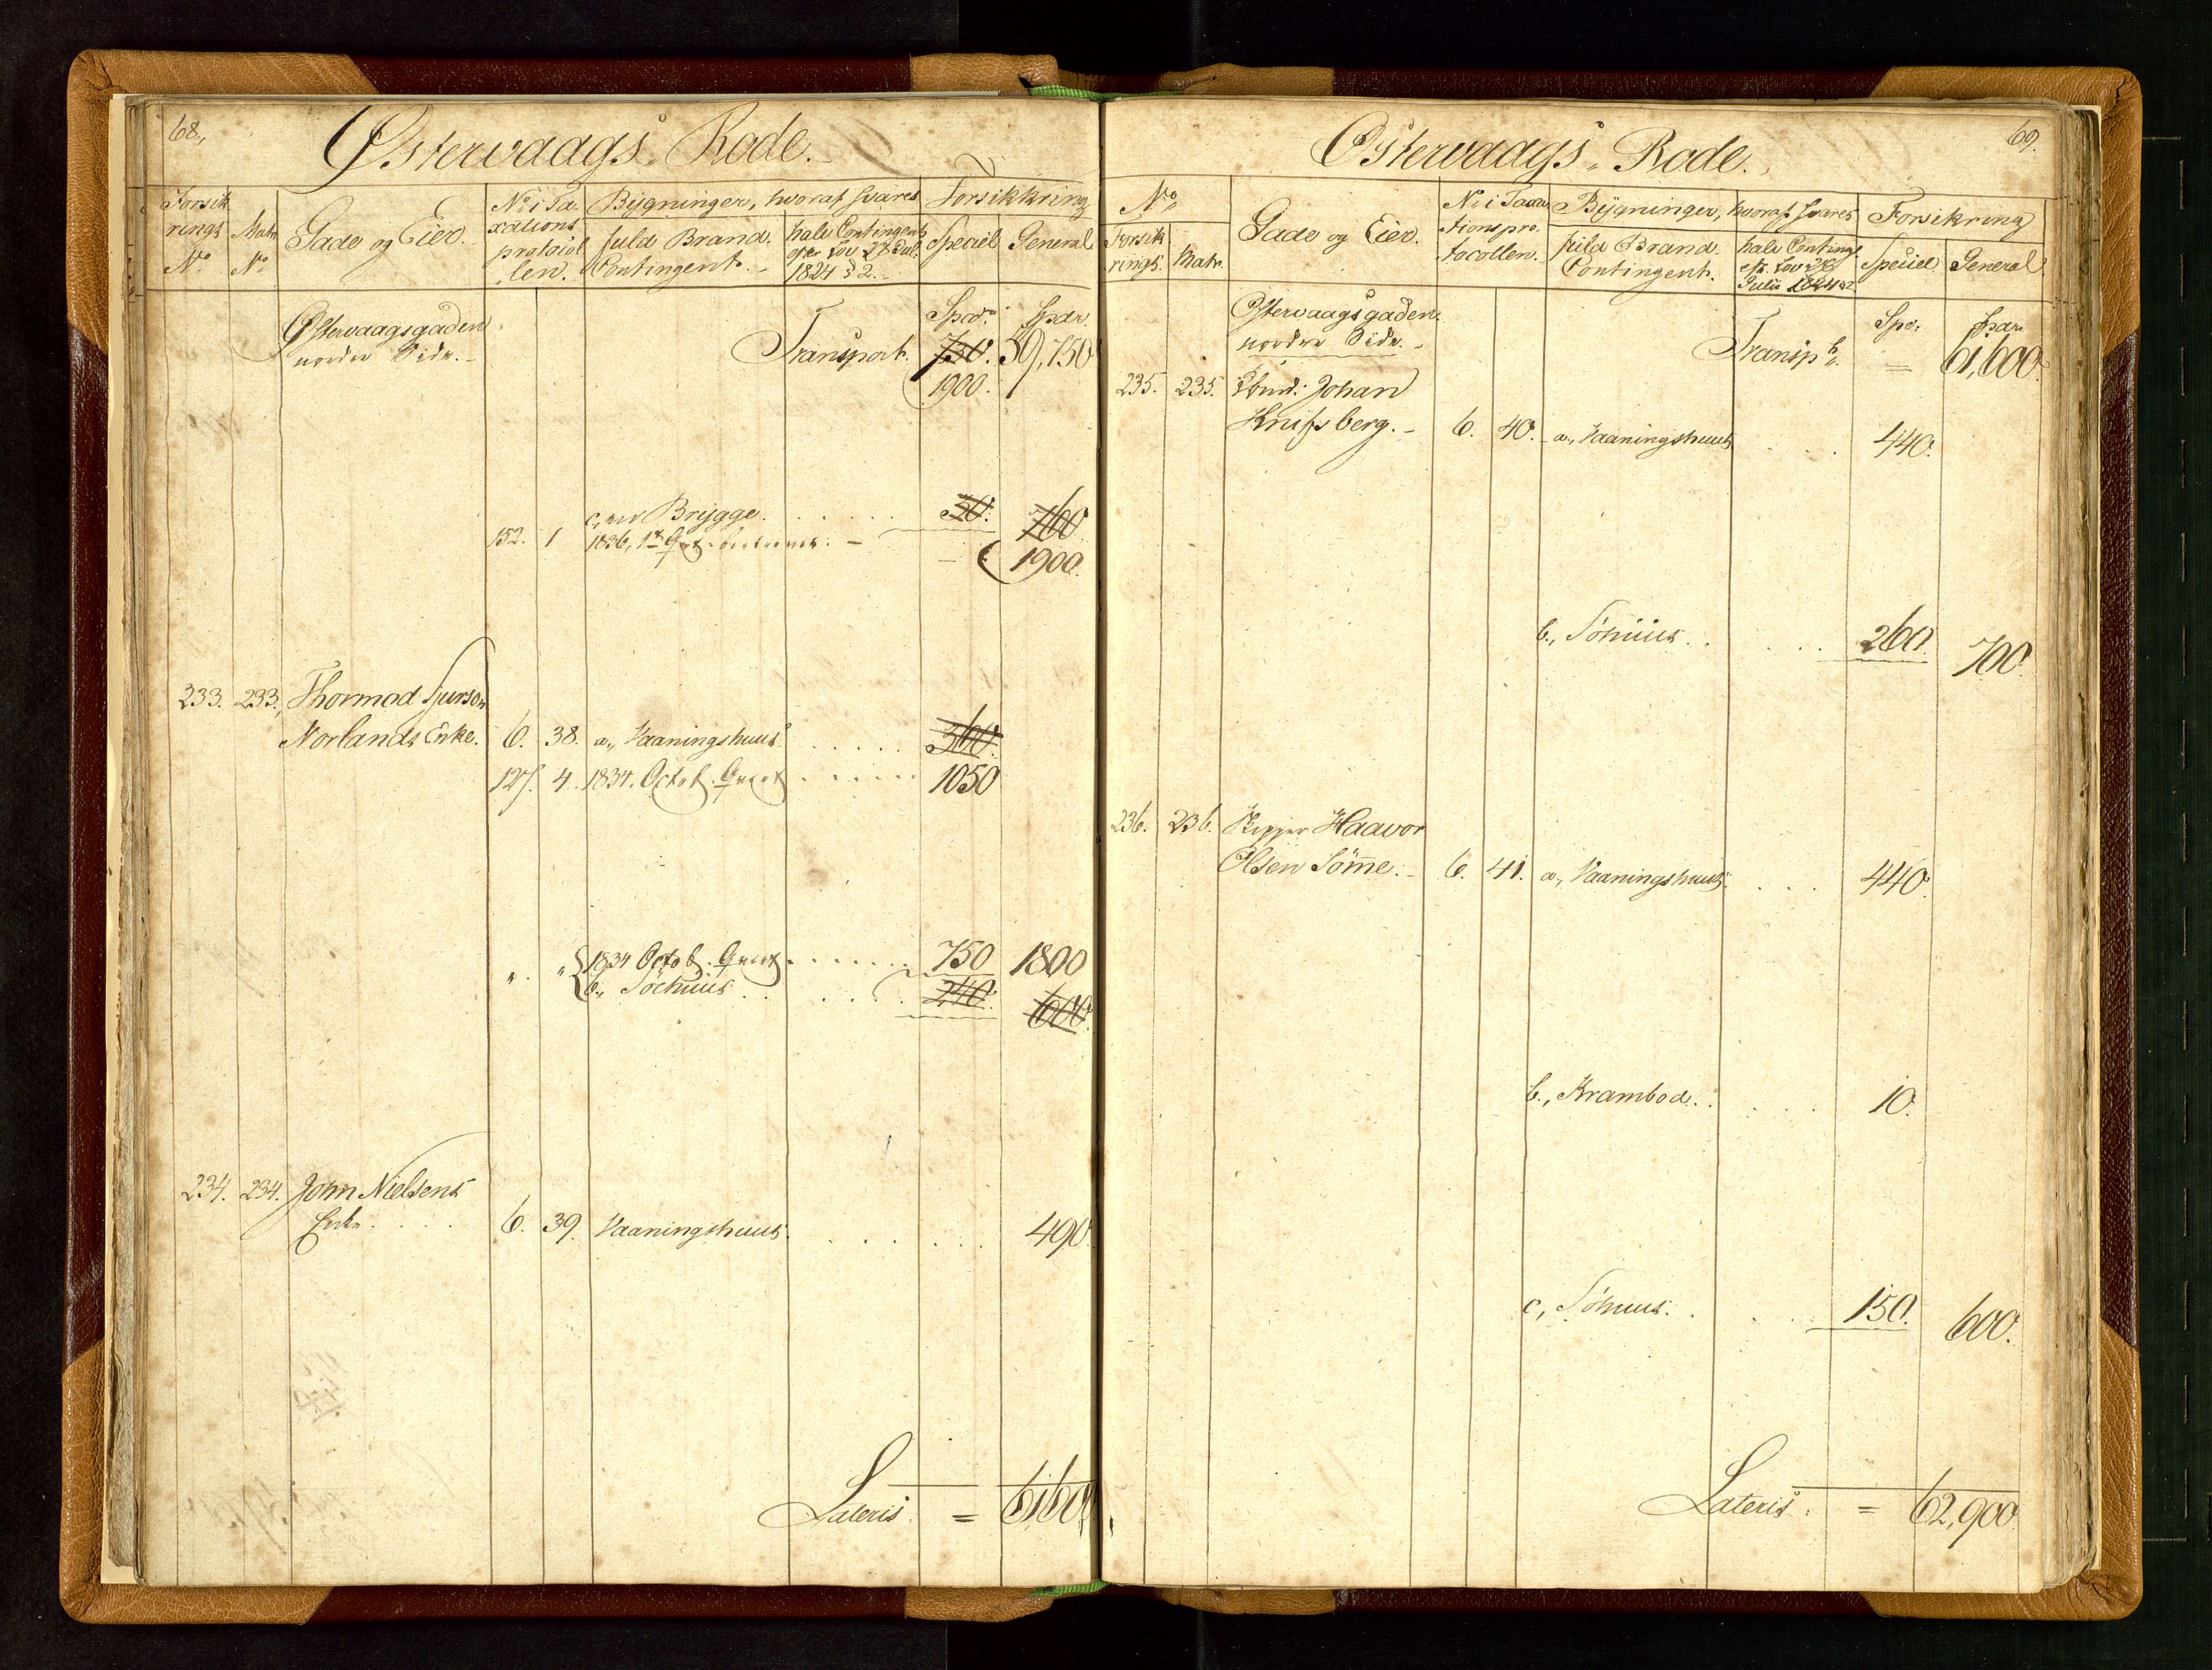 68.,
Østervaags Rode.
Forsik
rings
No
Matr
No
Gade og Eier.
No i Ta
xations
protocol
len.
Bygninger, hvoraf svares
fuld Brand.
Contingent.
halv Contingent
efter Lov 27 Jul.
1824 § 2.
Forsikkring
Speciel General
Østervaagsgaden
nordre Side.
Spdr. Spdr.
Transport. 730. 59,750
1900.
c, en Brygge. 30. 760
152. 1 1836, 1ste Qvt.
1900.
233. 233. Thormod Sjurson
Norlands Enke. 6. 38. a., Vaaningshuus. 360.
127. 4. 1834. Octob. Qvart 1050
„ „ 1834 Octob. Qvart 750 1800
b., Söehuus 240. 600.
234. 234. John Nielsens
Enke 6. 39. Vaaningshuus. 490.
Lateris = 61,600
69.
Østervaags Rode.
No
Forsik
rings
Matr.
Gade og Eier.
No i Taxa
tionspro
tocollen.
Bygninger, hvoraf svares
fuld Brand
Contingent.
halv Conting.
eft. Lov 27
Julii 1824 § 2
Forsikring
Speciel General
Østervaagsgaden
nordre Side.
Spd. Spdr.
Transpt. = 61,600.
235. 235. Johan
Knifsberg. 6. 40. a., Vaaningshuus 440.
b., Söhuus. 260. 700.
236. 236. Skipper Haavor
Olsen Sömme. 6. 41. a., Vaaningshuus. 440.
b., Krambod. 10.
c, Söhuus. 150. 600.
Lateris. = 62,900.